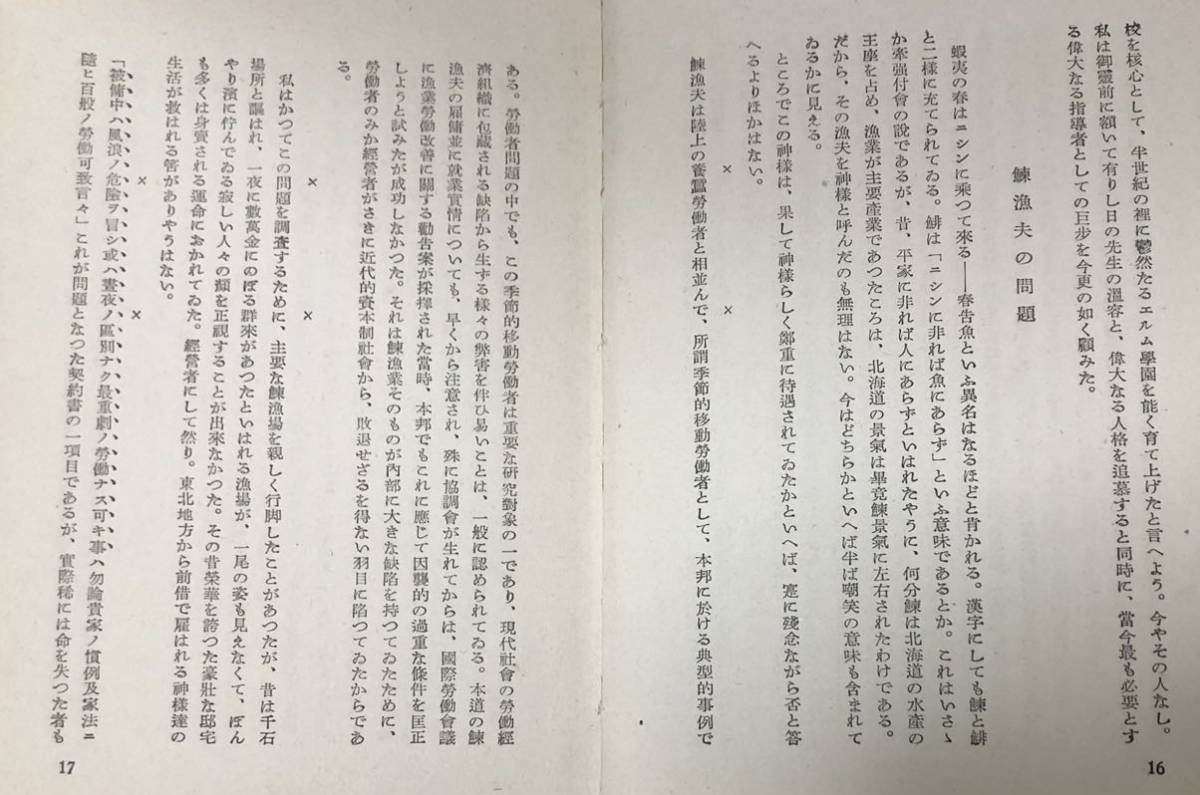 校を核心として、半世紀の裡に鬱然たるエルム學園を能く育て上げたと言へよう。今やその人なし。
私は御靈前に額いて有りし日の先生の溫容と、偉大なる人格を追慕すると同時に、當今最も必要とす
る偉大なる指導者としての巨步を今更の如く顧みた。
鰊漁夫の問題
蝦夷の春はニシンに乘つて來る――春告魚といふ異名はなるほどと肯かれる。漢字にしても鰊と鯡
と二樣に充てられてゐる。鯡は「ニシンに非れば魚にあらず」といふ意味であるとか。これはいさゝ
か牽强付會の說であるが、昔、平家に非れば人にあらずといはれたやうに、何分鰊は北海道の水產の
王座を占め、漁業が主要產業であつたころは、北海道の景氣は畢竟鰊景氣に左右されたわけである。
だから、その漁夫を神樣と呼んだのも無理はない。今はどちらかといへば半ば嘲笑の意味も含まれて
ゐるかに見える。
ところでこの神樣は、果して神樣らしく鄭重に待遇されてゐたかといへば、寔に殘念ながら否と答
へるよりほかはない。
× ×
鰊漁夫は陸上の養蠶勞働者と相並んで、所謂季節的移動勞働者として、本邦に於ける典型的事例で
16
ある。勞働者問題の中でも、この季節的移動勞働者は重要な硏究對象の一であり、現代社會の勞働經
濟組織に包藏される缺陷から生ずる樣々の弊害を伴ひ易いことは、一般に認められてゐる。本道の鰊
漁夫の雇傭並に就業實情についても、早くから注意され、殊に協調會が生れてからは、國際勞働會議
に漁業勞働改善に關する勸告案が採擇された當時、本邦でもこれに應じて因襲的の過重な條件を匡正
しようと試みたが成功しなかつた。それは鰊漁業そのものが內部に大きな缺陷を持つてゐたために、
勞働者のみか經營者がさきに近代的資本制社會から、敗退せざるを得ない羽目に陷つてゐたからであ
る。
× ×
私はかつてこの問題を調査するために、主要な鰊漁場を親しく行脚したことがあつたが、昔は千石
場所と謳はれ、一夜に數萬金にのぼる群來があつたといはれる漁場が、一尾の姿も見えなくて、ぼん
やり濱に佇んでゐる寂しい人々の顏を正視することが出來なかつた。その昔榮華を誇つた豪壯な邸宅
も多くは身賣される運命におかれてゐた。經營者にして然り。東北地方から前借で雇はれる神樣達の
生活が救はれる筈がありやうはない。
× ×
「被傭中ハ風浪ノ危險ヲ冒シ或ハ晝夜ノ區別ナク最重劇ノ勞働ナス可キ事ハ勿論貴家ノ慣例及家法ニ
隨ヒ百般ノ勞働可致言々」これが問題となつた契約書の一項目であるが、實際稀には命を失つた者も
17